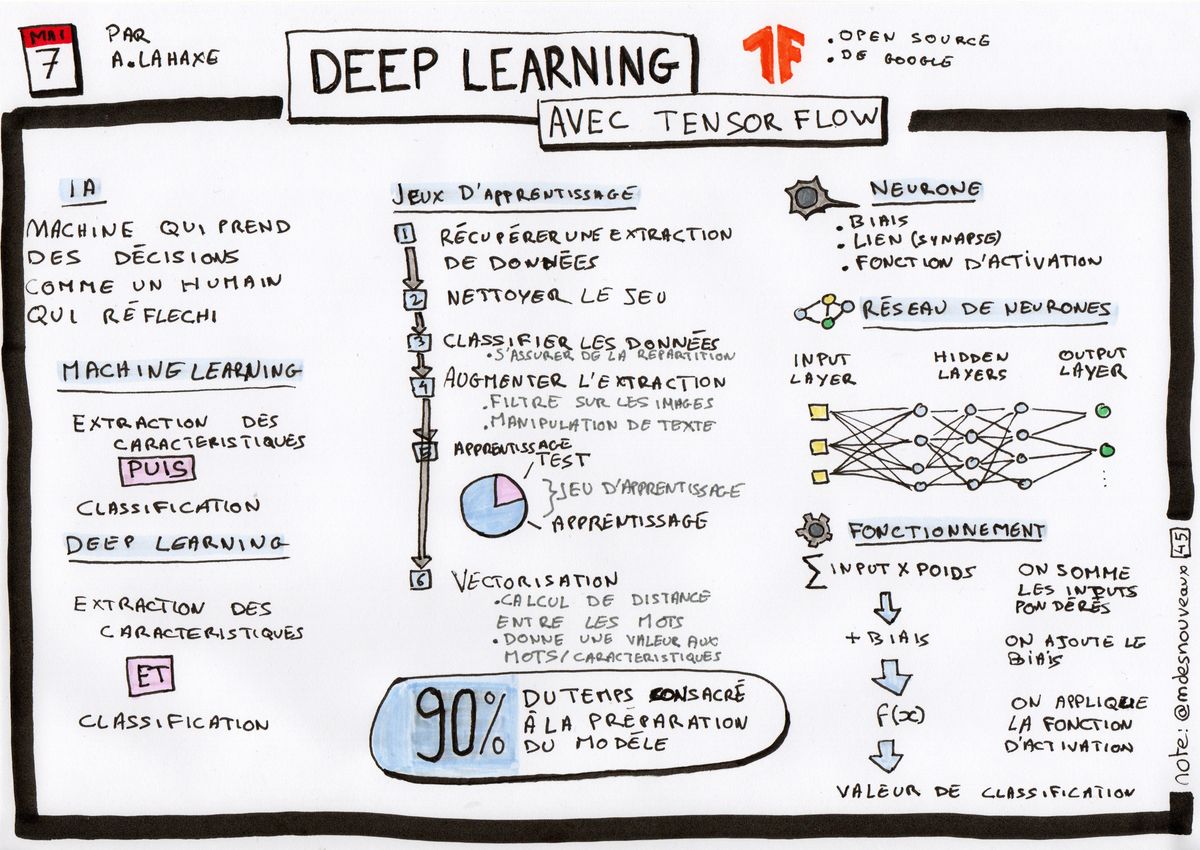 MAI
7
PAR
A. LAHAXE
DEEP LEARNING
AVEC TENSOR FLOW
TF
. OPEN SOURCE
. DE GOOGLE
IA
MACHINE QUI PREND
DES DÉCISIONS
COMME UN HUMAIN
QUI RÉFLECHI
MACHINE LEARNING
EXTRACTION DES
CARACTERISTIQUES
PUIS
CLASSIFICATION
DEEP LEARNING
EXTRACTION DES
CARACTERISTIQUES
ET
CLASSIFICATION
JEUX D'APPRENTISSAGE
1 RÉCUPÉRER UNE EXTRACTION
DE DONNÉES
2 NETTOYER LE JEU
3 CLASSIFIER LES DONNÉES
. S'ASSURER DE LA REPARTITION
4 AUGMENTER L'EXTRACTION
. FILTRE SUR LES IMAGES
. MANIPULATION DE TEXTE
5 APPRENTISSAGE
TEST
JEU D'APPRENTISSAGE
APPRENTISSAGE
6 VECTORISATION
. CALCUL DE DISTANCE
ENTRE LES MOTS
. DONNE UNE VALEUR AUX
MOTS/CARACTERISTIQUES
90% DU TEMPS CONSACRÉ
À LA PRÉPARATION
DU MODÈLE
NEURONE
. BIAIS
. LIEN (SYNAPSE)
. FONCTION D'ACTIVATION
RÉSEAU DE NEURONES
INPUT
LAYER
HIDDEN
LAYERS
OUTPUT
LAYER
FONCTIONNEMENT
∑ INPUT X POIDS
ON SOMME
LES INPUTS
PONDÉRÉS
+ BIAIS
ON AJOUTE LE
BIAIS
F(x)
ON APPLIQUE
LA FONCTION
D'ACTIVATION
VALEUR DE CLASSIFICATION
note: @mdesnouveaux 45